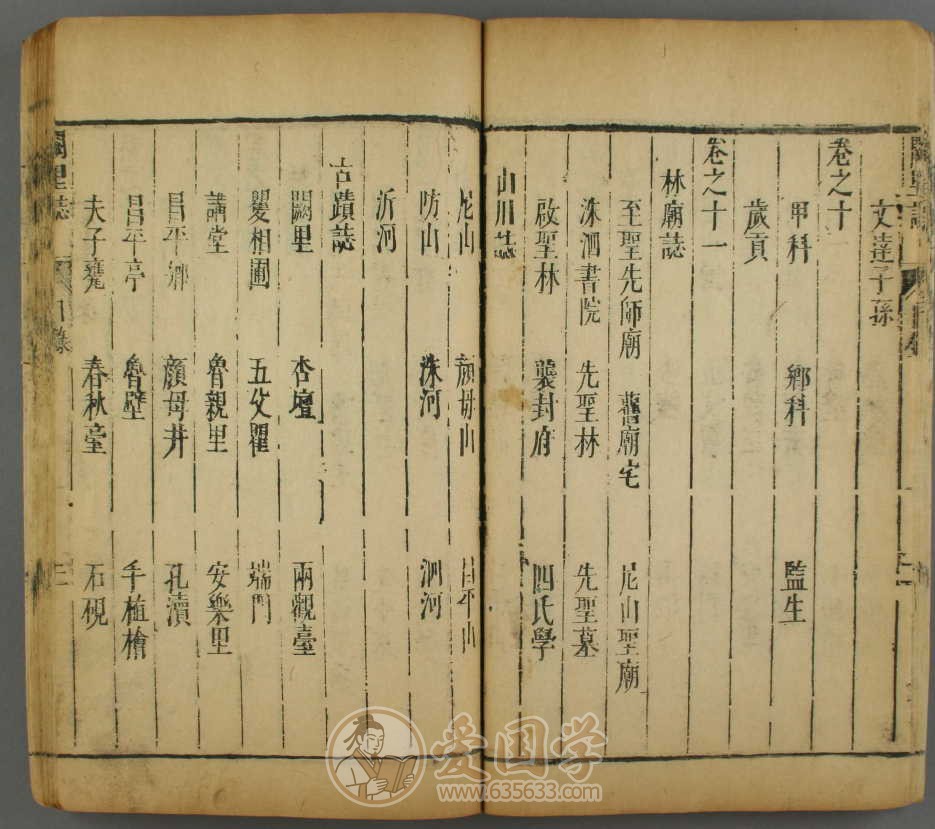 文達子孫
卷之十
甲科 鄉科 監生
歲貢
卷之十一
林廟誌
至聖先師廟 舊廟宅 尼山聖廟
洙泗書院 先聖林 先聖墓
啟聖林 襲封府 四氏學
山川誌
尼山 顏母山 昌平山
防山 洙河 泗河
沂河
古蹟誌
闕里 杏壇 兩觀臺
矍相圃 五父衢 端門
講堂 魯親里 安樂里
昌平鄉 顏母井 孔瀆
昌平亭 魯壁 手植檜
夫子甕 春秋臺 石硯
闕里誌 目錄
爱国学
www.635633.com